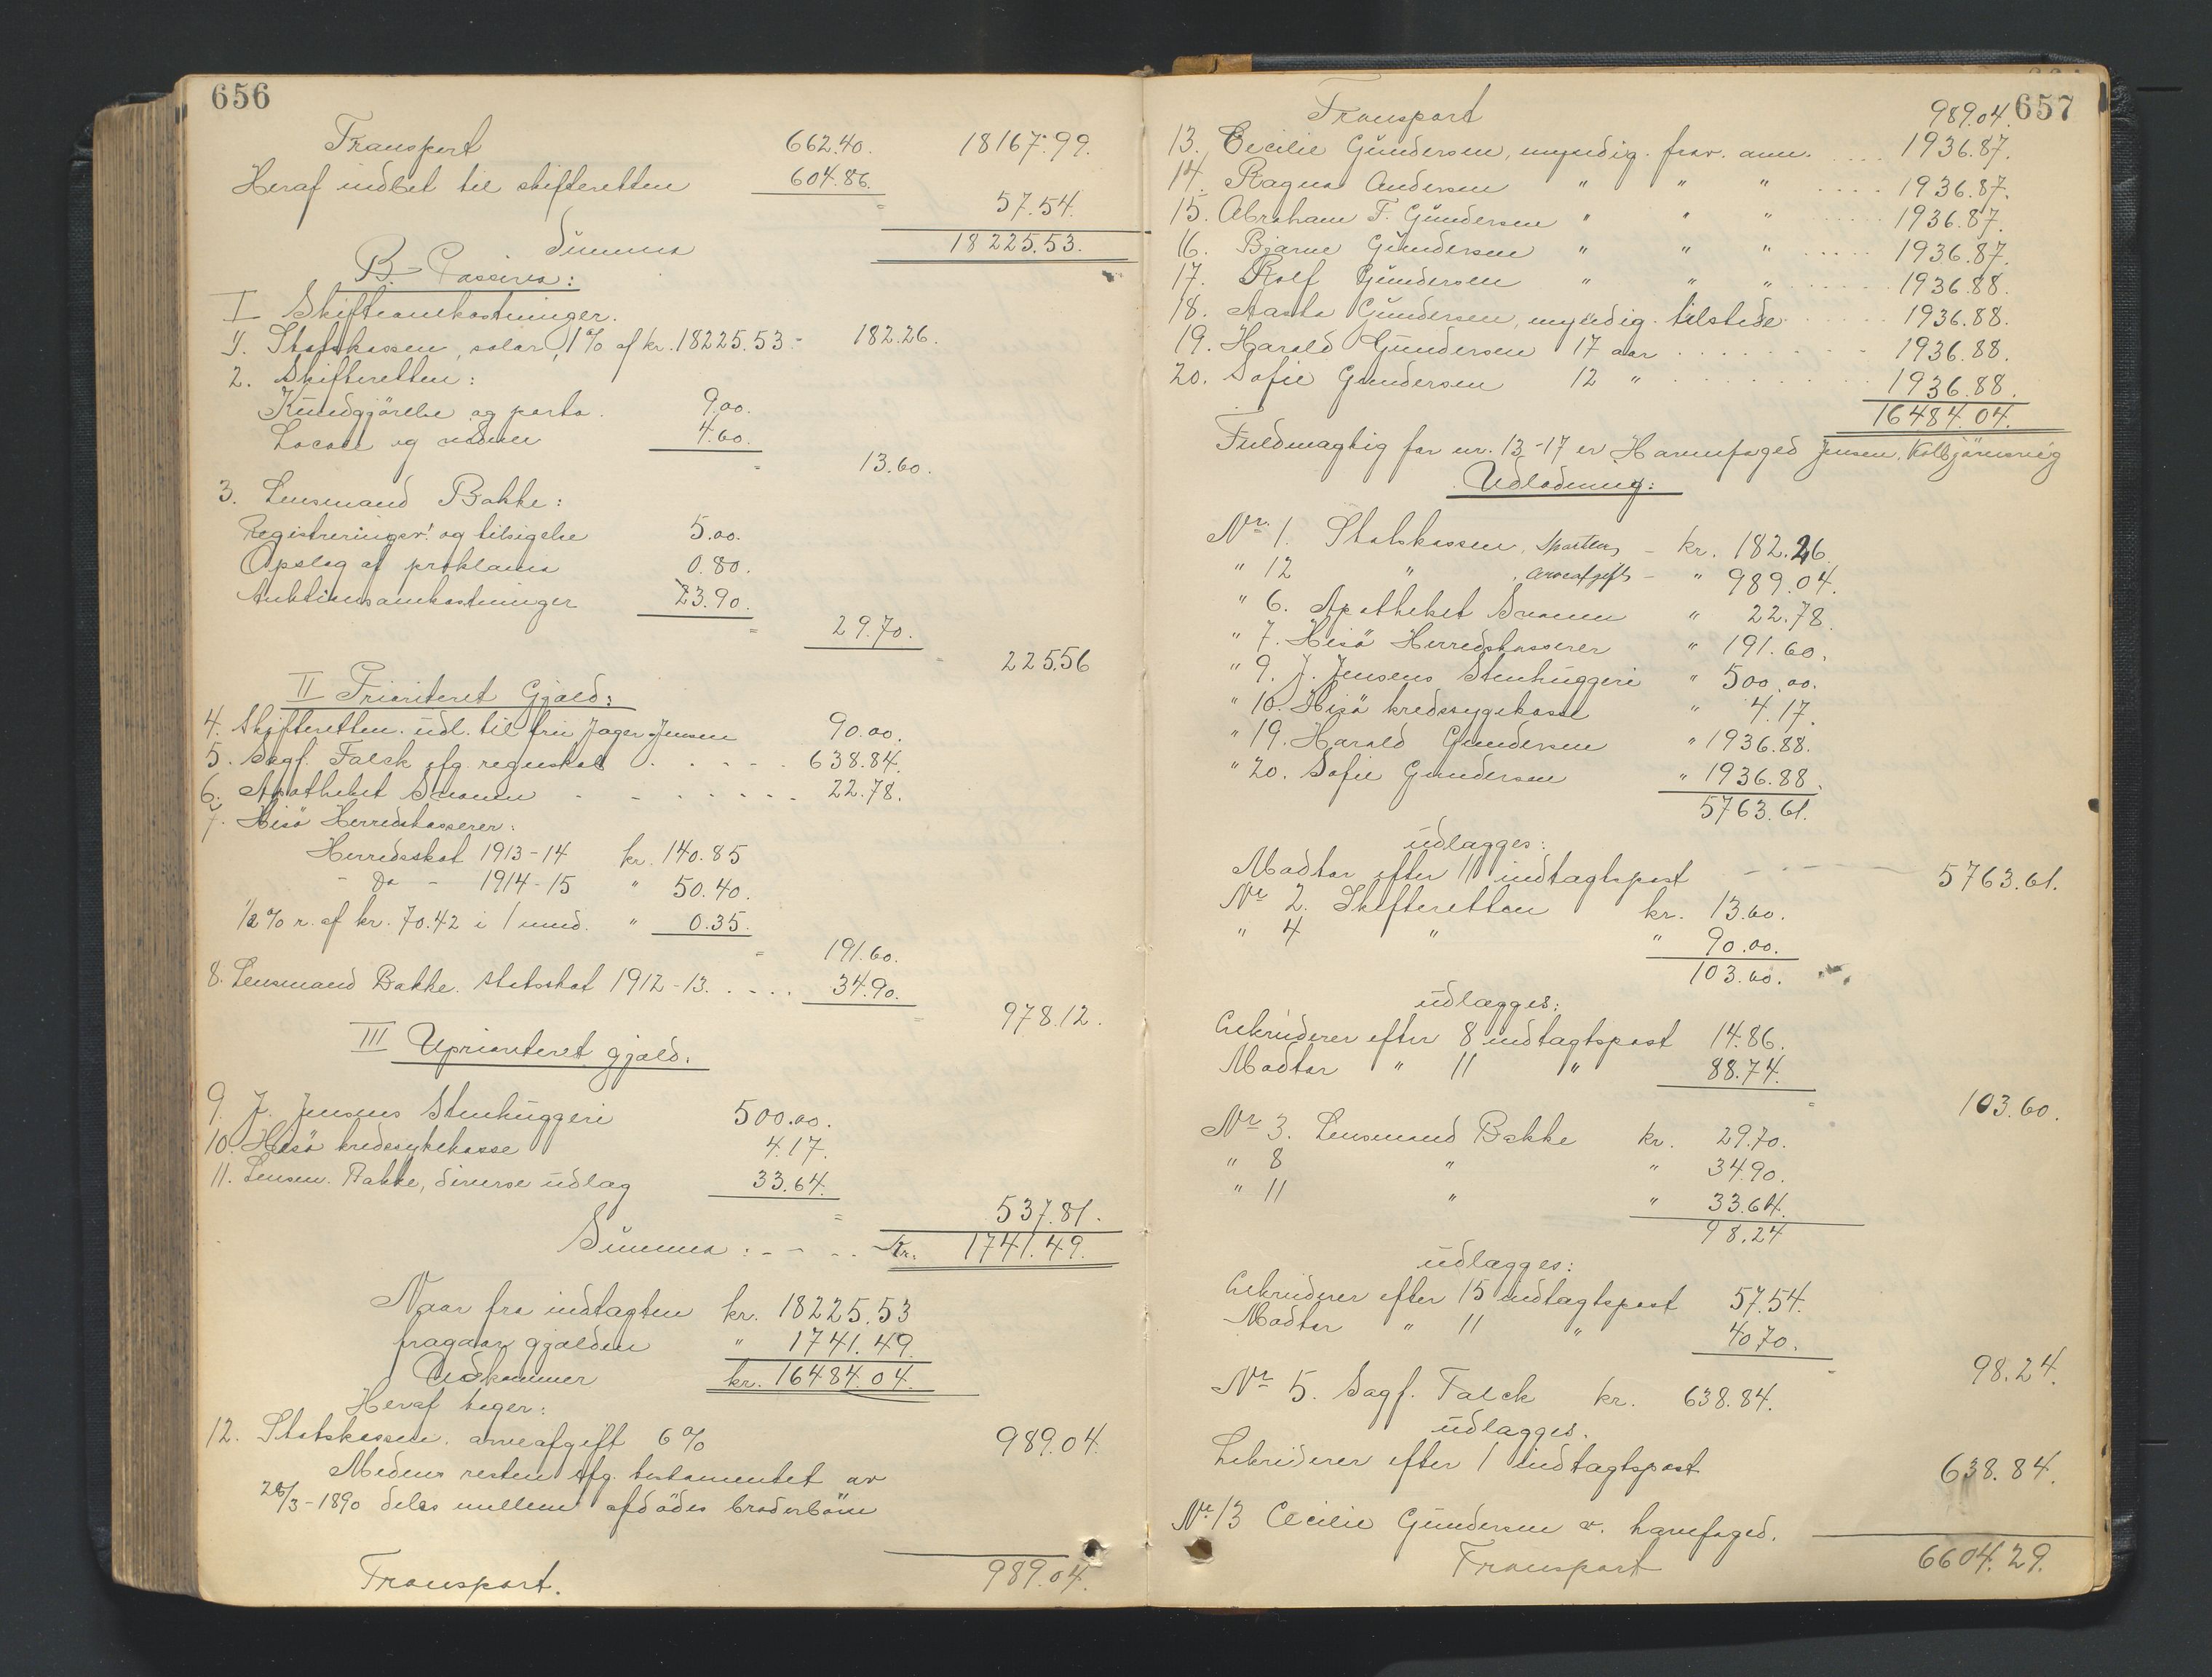 656
Transport 662.40. 18167.99.
Heraf indbet til skifteretten 604.86.
= 57.54.
Summa 18225.53.
B. Passiva:
I Skifteomkostninger.
1. Statskassen, salar, 1% af kr. 18225.53 - 182.26.
2. Skifteretten:
Kundgjörelse og porto. 9.00.
Locale og vidner 4.60.
= 13.60.
3. Lensmand Bakke:
Registreringsv. og tilsigelse 5.00.
Opslag af proklama 0.80.
Auktionsomkostninger 23.90.
= 29.70.
- 225.56
II Prioriteret Gjæld:
4. Skifteretten. udl. til fru Jager-Jensen 90.00.
5. Sagf. Falck ifg. regnskab . - - - - 638.84.
6. Apotheket Svanen - - - - - - - 22.78.
7. Hisö Herredskasserer:
Herredsskat 1913-14 kr. 140.85
- Do - 1914-15 " 50.40.
1/2% r. af kr. 70.42 i 1 mnd. " 0.35.
= 191.60.
8. Lensmand Bakke. statsskat 1912-13. . . . . 34.90.
= 978.12.
III Uprioriteret gjæld.
9. J. Jensens Stenhuggeri 500.00.
10. Hisö kredssykekasse 4.17.
11. Lensm. Bakke, diverse udlæg 33.64.
= 537.81.
Summa: - - - - Kr. 1741.49.
Naar fra indtægten kr. 18225.53
fragaar gjælden " 1741.49.
Udkommer kr. 16484.04.
Heraf tager:
12. Statskassen. arveafgift 6% 989.04.
Medens resten ifg. testamentet av
28/3-1890 deles mellem afdödes broderbörn
Transport. 989.04.
657
Transport 989.04.
13. Cecilie Gundersen, myndig. frav. anm. . . . . 1936.87.
14. Ragna Andersen " " " . . . . 1936.87.
15. Abraham F. Gundersen " " " . . . . 1936.87.
16. Bjarne Gundersen " " " . . . . . 1936.87.
17. Rolf Gundersen " " " . . . . . . 1936.88.
18. Aasta Gundersen, myndig. tilstede . . . . . . 1936.88.
19. Harald Gundersen 17 aar . . . . . . . . 1936.88.
20. Sofie Gundersen 12 " . . . . . . . . . 1936.88.
16484.04.
Fuldmægtig for nr. 13-17 er Havnefoged Jensen, Kolbjörnsvig
Udlodning:
Nr. 1. Statskassen, sportler - kr. 182.26.
" 12 " , arveafgift - " 989.04.
" 6. Apotheket Svanen " 22.78.
" 7. Hisö Herredskasserer " 191.60.
" 9. J. Jensens Stenhuggeri " 500.00.
" 10. Hisö kredssygekasse " 4.17.
" 19. Harald Gundersen " 1936.88.
" 20. Sofie Gundersen " 1936.88.
5763.61.
udlægges:
Modtar efter 11 indtægtspost - - - - 5763.61.
Nr 2. Skifteretten kr. 13.60.
" 4 " " 90.00.
103.60.
udlægges:
Likviderer efter 8 indtægtspost 14.86.
Modtar " 11 " 88.74.
= 103.60.
Nr 3. Lensmand Bakke kr. 29.70.
" 8 " " 34.90.
" 11 " " 33.64.
98.24
udlægges:
Likviderer efter 15 indtægtspost 57.54.
Modtar " 11 " 40.70.
= 98.24.
Nr 5. Sagf. Falck kr. 638.84.
udlægges.
Likviderer efter 1 indtægtspost 638.84.
Nr 13 Cecilie Gundersen v. havnefoged.
Transport 6604.29.